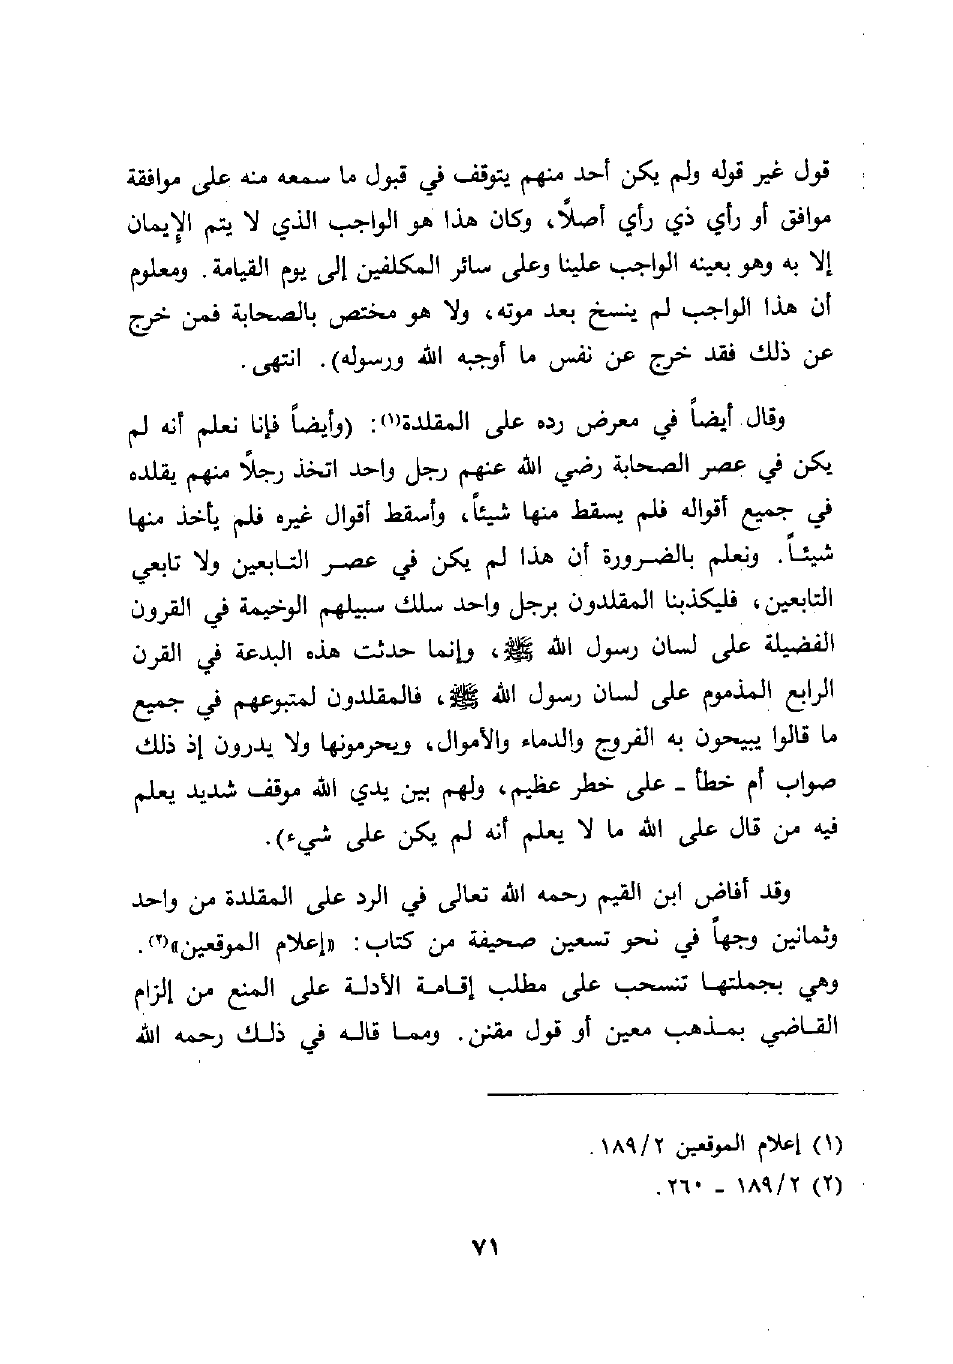 قول غير قوله ولم يكن أحد منهم يتوقف في قبول ما سمعه منه على موافقة
موافق أو رأي ذي رأي أصلاً، وكان هذا هو الواجب الذي لا يتم الإيمان
إلا به وهو بعينه الواجب علينا وعلى سائر المكلفين إلى يوم القيامة. ومعلوم
أن هذا الواجب لم ينسخ بعد موته، ولا هو مختص بالصحابة فمن خرج
عن ذلك فقد خرج عن نفس ما أوجبه الله ورسوله). انتهى.
وقال أيضاً في معرض رده على المقلدة(١): (وأيضاً فإنا نعلم أنه لم
يكن في عصر الصحابة رضي الله عنهم رجل واحد اتخذ رجلاً منهم يقلده
في جميع أقواله فلم يسقط منها شيئاً، وأسقط أقوال غيره فلم يأخذ منها
شيئاً. ونعلم بالضرورة أن هذا لم يكن في عصر التابعين ولا تابعي
التابعين، فليكذبنا المقلدون برجل واحد سلك سبيلهم الوخيمة في القرون
الفضيلة على لسان رسول الله ﷺ، وإنما حدثت هذه البدعة في القرن
الرابع المذموم على لسان رسول الله ﷺ، فالمقلدون لمتبوعهم في جميع
ما قالوا يبيحون به الفروج والدماء والأموال، ويحرمونها ولا يدرون إذ ذلك
صواب أم خطأ ـ على خطر عظيم، ولهم بين يدي الله موقف شديد يعلم
فيه من قال على الله ما لا يعلم أنه لم يكن على شيء).
وقد أفاض ابن القيم رحمه الله تعالى في الرد على المقلدة من واحد
وثمانين وجهاً في نحو تسعين صحيفة من كتاب: «إعلام الموقعين»(٢).
وهي بجملتها تنسحب على مطلب إقامة الأدلة على المنع من إلزام
القاضي بمذهب معين أو قول مقنن. ومما قاله في ذلك رحمه الله
(١) إعلام الموقعين ٢/١٨٩.
(٢) ٢/١٨٩ ـ ٢٦٠.
٧١